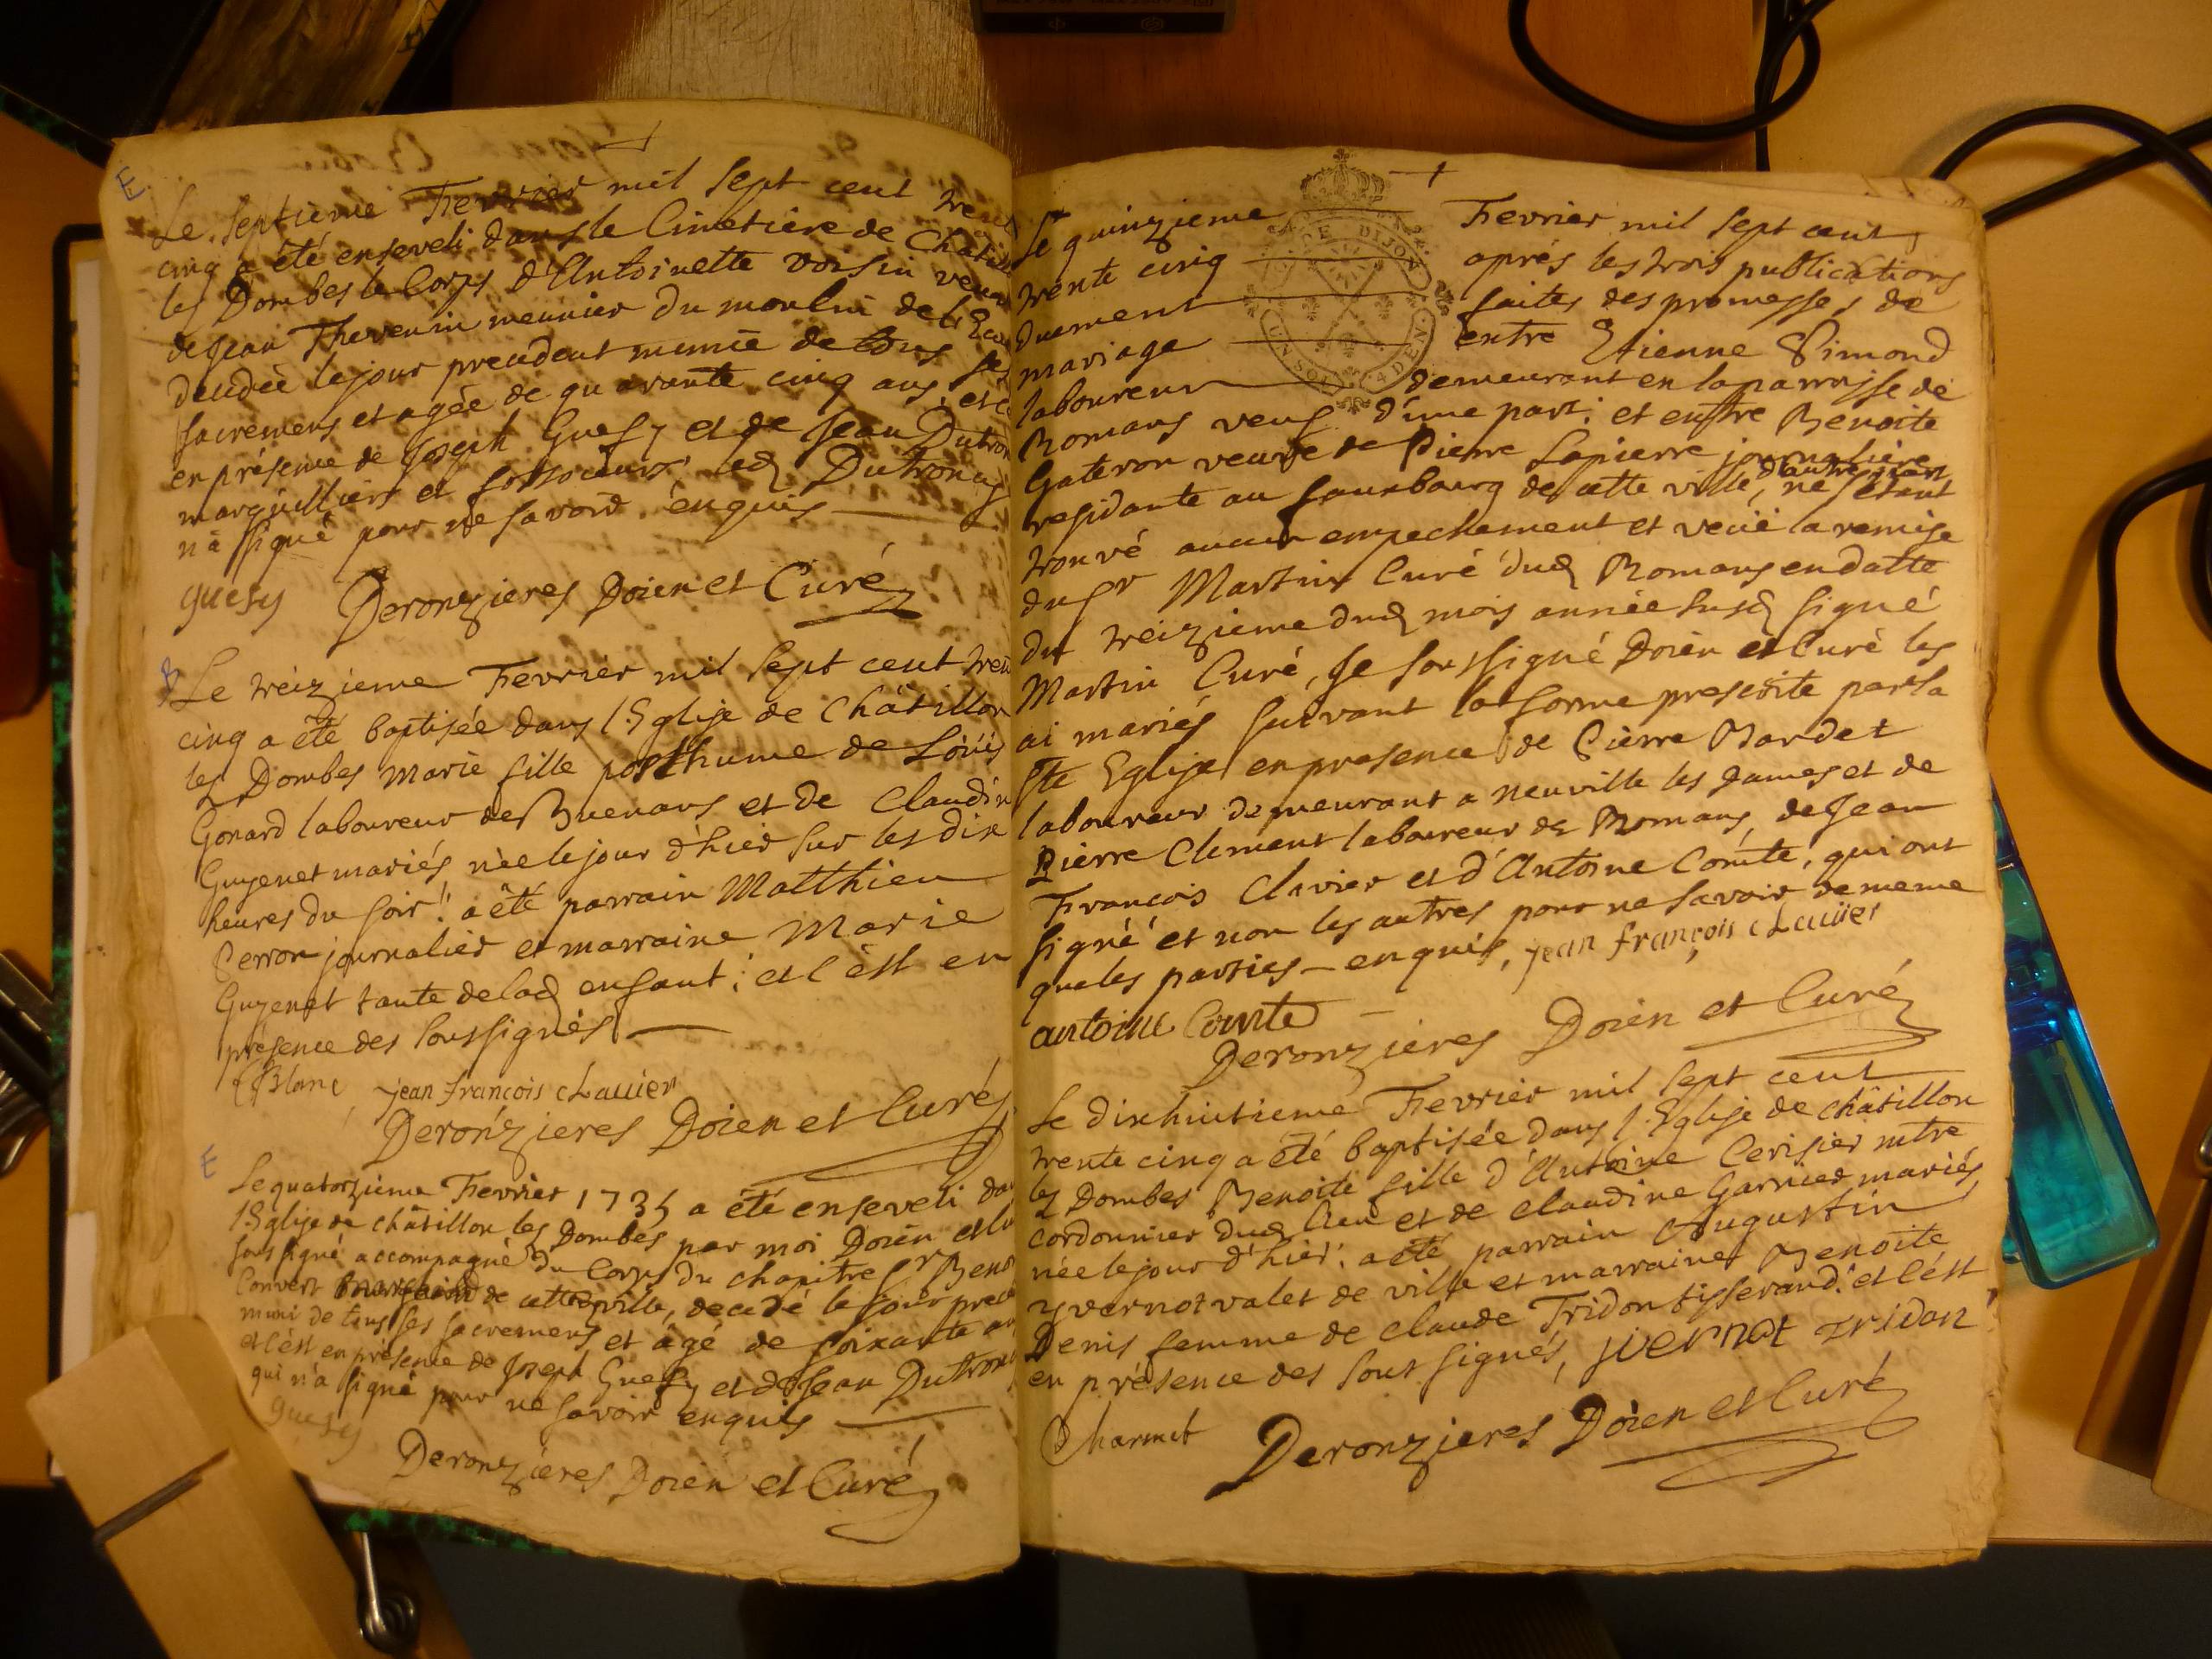 E
Le Septieme Fevrier mil sept cent trente
cinq a été enseveli dans le Cimetiere de Châtill
les Dombes le Corps d'Antoinette Voisin veuve
de Jean Thevenin meunier du moulin de
decedée le jour precedent munie de tous ses
sacremens et agée de quarante cinq ans, et
en présence de Joseph Guesy et de Jean Dutron
marguilliers et fossoieurs led Dutroncy
n'a signé pour ne savoir enquis
guesy Deronzieres Doien et Curé
B
Le treizieme Fevrier mil sept cent tren
cinq a été baptisée dans l'Eglise de Châtillon
les Dombes Marie fille posthume de Loüis
Gonard laboureur de Buenans et de Claudin
Guyenet mariés née le jour d'hier sur les dix
heures du soir: a été parrain Matthieu
Perron journalier et marraine Marie
Guyenet tante de lad enfant; et c'est en
présence des soussignés
Blanc jean françois cLauier
Deronzieres Doien et Curé
E
Le quatorzieme Fevrier 1735 a été enseveli da
l'Eglise de châtillon les Dombes par moi Doien et Cu
soussigné accompagné du Corps du chapitre Sr Beno
Convert de cette ville, decedé le jour prece
muni de tous ses sacremens et âgé de soixante an
et c'est en présence de Joseph Guesy et de Jean Dutron
qui n'a signé pour ne savoir enquis
guesy
Deronzières Doien et Curé
Le quinzieme Fevrier mil sept cent
trente cinq après les trois publications
duement faites des promesses de
mariage entre Etienne Simond
laboureur demeurant en la parroisse de
Romans veuf d'une part; et entre Benoite
Gateron veuve de Pierre Lapierre journaliere
residante au fauxbourg de cette ville, d'autre part ne s'étant
trouvé aucun empechement et veüe la remise
du Sr Martin Curé dud Romans en datte
du treizieme dud mois année susd signé
Martin Curé, Je soussigné Doien et Curé les
ai mariés suivant la forme prescrite par la
Ste Eglise en presence de Pierre Bardet
laboureur demeurant a Neuville les Dames et de
Pierre Clement laboureur de Romans, de Jean
François Clavier et d'Antoine Comte, qui ont
signé et non les autres pour ne savoir de meme
que les parties enquis, jean françois cLauier
antoine Comte
Deronzieres Doien et Curé
Le dixhuitieme Fevrier mil sept cent
trente cinq a été baptisée dans l'Eglise de châtillon
les Dombes Benoite fille d'Antoine Cerisier mtre
cordonnier dud lieu et de claudine Garnier mariés
née le jour d'hier: a été parrain Augustin
yvernot valet de ville et marraine Benoite
Denis femme de claude Tridon tisserand: et c'est
en présence des soussignés, jvernot tridon
Charmet Deronzieres Doien et Curé